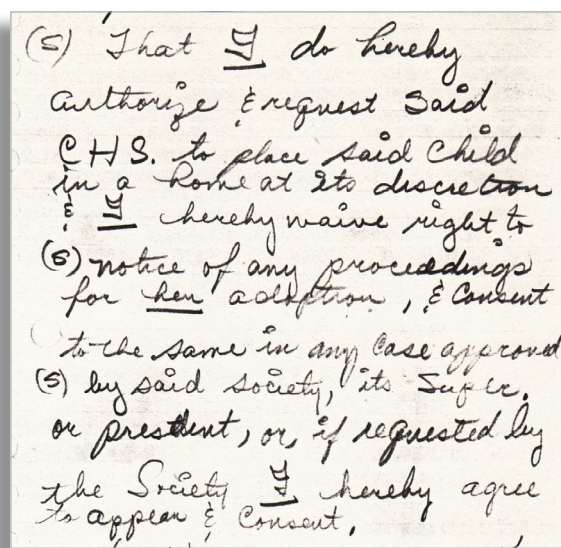 (S) That I do hereby
authorize & request said
C H S. to place said child
in a home at its discretion
& I hereby waive right to
(S) notice of any proceedings
for her adoption, & consent
to the same in any case approved
(S) by said society, its Super.
or president, or, if requested by
the Society I hereby agree
to appear & Consent.